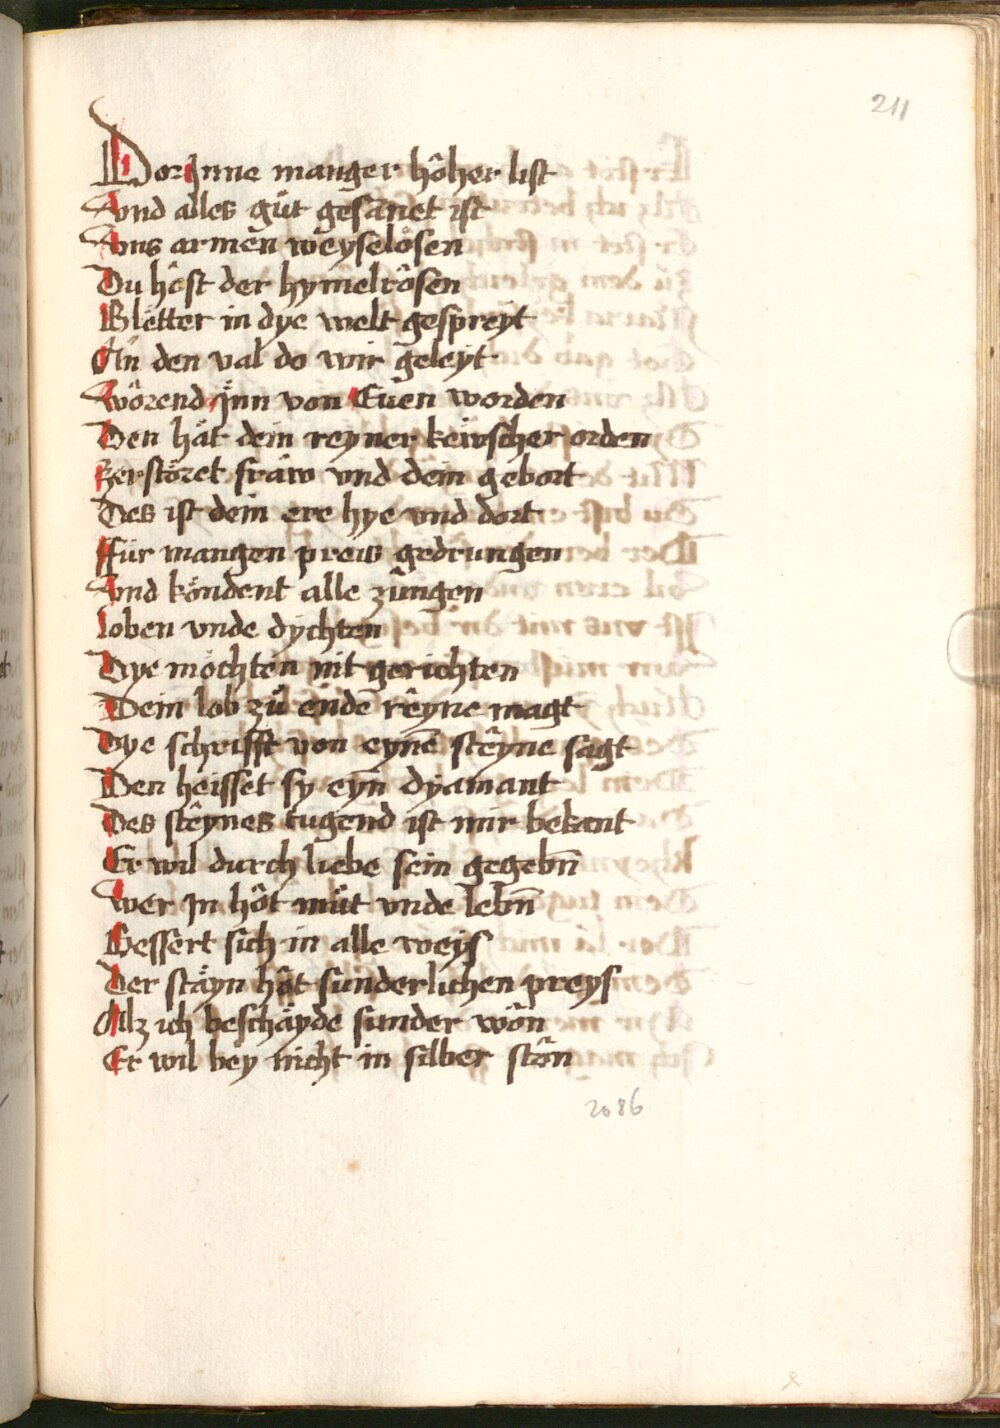 211
Dor Inne manger hôher list
Vnd alles gůt gesanet ist
Vns armen weyselôsen
Du hôst der hymelrôsen
Bletter in dye welt gespreyt
An den val do wir geleyt
Wôrend Jnn von Euen worden
Den hät dein reyner kewscher orden
Zerstöret fraw vnd dein gebort
Des ist dein ere hye vnd dort
Für mangen preis gedrungen
Vnd köndent alle zungen
loben vnde dychten
Dye möchten nit gerichten
Dein lob zů ende rêyne magt
Dye schrifft von eynē stêyne sagt
Den heisset sy eyn dyamant
Des stêynes tugend ist mir bekant
Er wil durch liebe sein gegebn̄
Wer Jn hôt můt vnde lebn̄
Bessert sich in alle weys
Der stäyn hôt sunderlichen preys
Alz ich beschäyde sunder wôn
Er wil bey nicht in silber stôn
2086